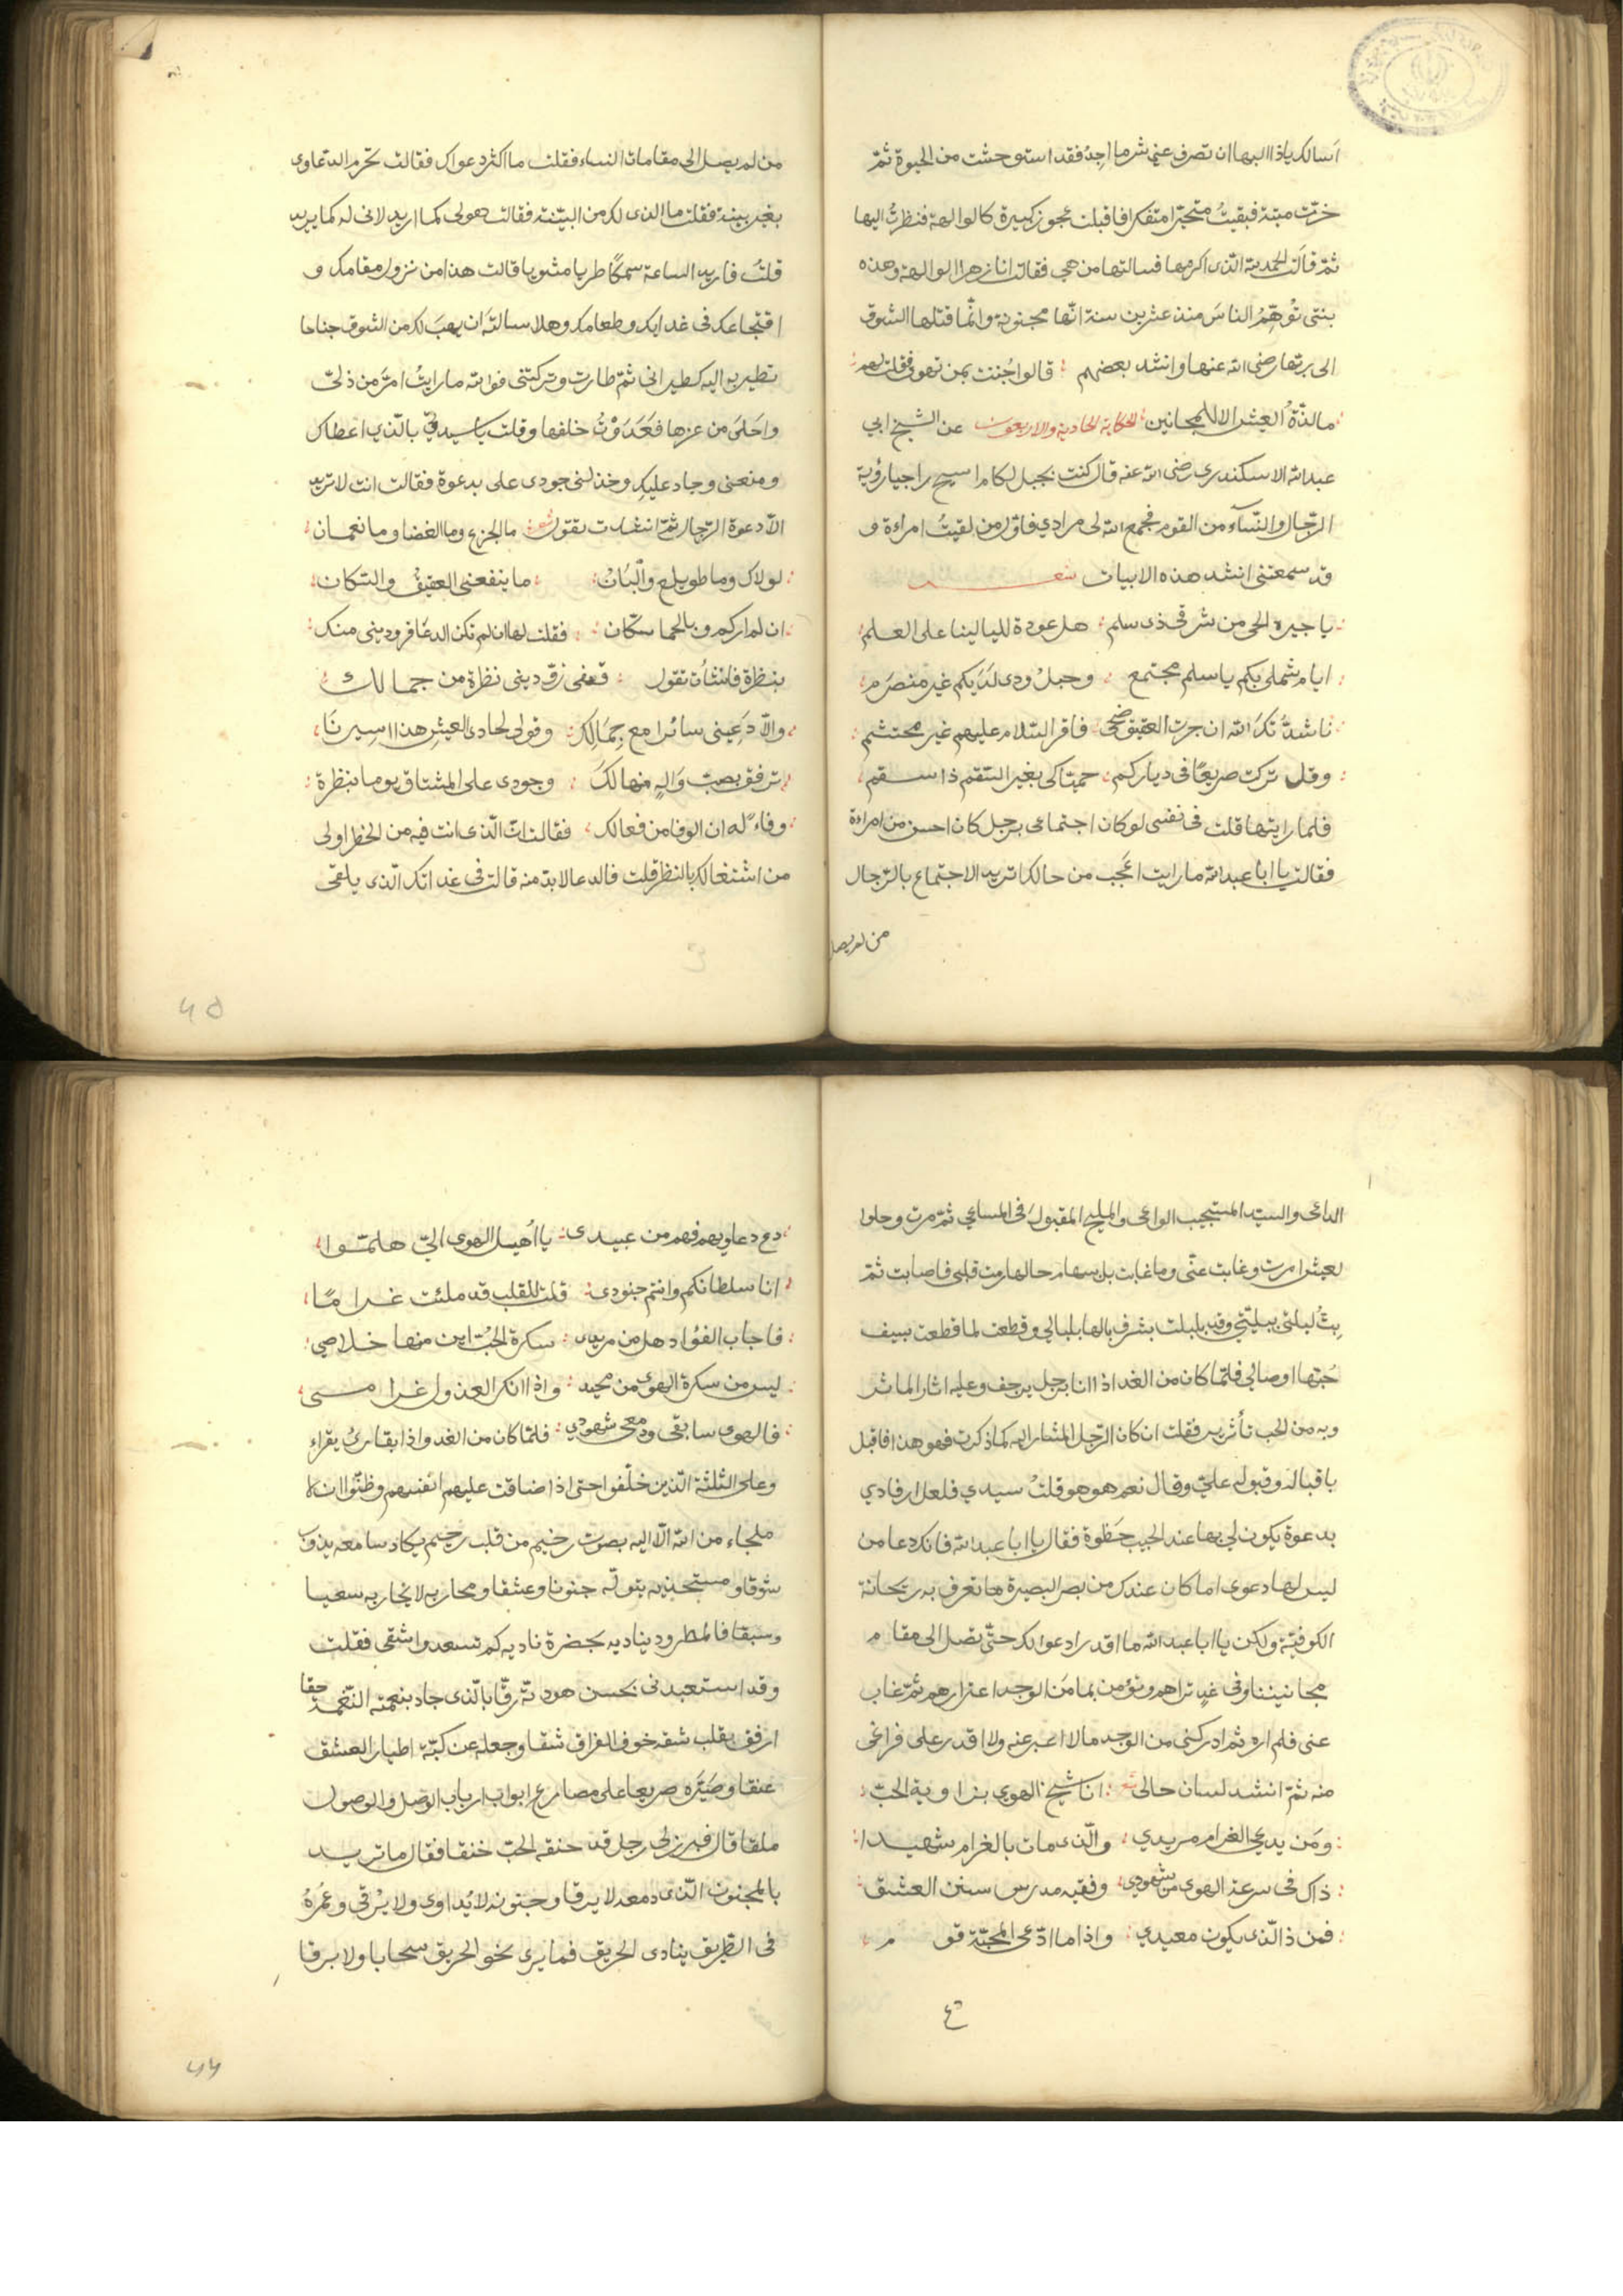 أسألك يا ذا البها ان تصرف عني شر ما اجد فقد استوحشت من الحيوة ثمّ
خرّت ميتة فبقيتُ متحيّرا متفكرا فاقبلت عجوز كبيرة كالوالهة فنظرتُ اليها
ثمّ قالت الحمد لله الّذى اكرمها فسالتها من هي فقالت انا زهرا الوالهة وهذه
بنتى توهّم الناس منذ عشرين سنة انّها مجنونة وانّما قتلها الشوق
الى ربّها رضى الله عنها وانشد بعضهم قالوا جُننت بمن تهوى فقلت لهم
مالذّة العيش الا للمجانين الحكاية الحادية والاربعون عن الشيخ ابي
عبدالله الاسكندرى رضى الله عنه قال كنت بجبل لكام اسيح راجيا رؤية
الرّجال والنّسآء من القوم فجمع الله لى مرادي فاوّل من لقيتُ امراءة و
قد سمعتنى انشد هذه الابيات شعر
يا جيرة الحى من شرقى ذى سلم هل عودة لليالينا على العلم
ايام شملى بكم يا سلم مجتمع وحبلُ ودى لدَيكم غير منصَرم
ناشدتُكَ الله ان جزت العقيق ضحى فاقر السّلام عليهم غير محتشم
وقل تركت صريعًا فى دياركم حيّا كى بغير السّقم ذا سقم
فلما رايتها قلت فى نفسى لو كان اجتماعى برجل كان احسن من امراءة
فقالت يا ابا عبدالله ما رايت اعجَب من حالك اتريد الاجتماع بالرّجال
من لم يصل
من لم يصل الى مقامات النساء فقلت ما اكثر دعواك فقالت تحرم الدّعاوى
بغير بينة فقلت ما الذى لك من البيّنة فقالت هو لى كما اريد لانى له كما يريد
قلتُ فاريد الساعة سمكًا طريا مشويا قالت هذا من نزول مقامك و
وطعامك وهلا سالته ان يهبَ لك من الشوق جناحا
تطير به اليه كطيرانى ثمّ طارت وتركتنى فوالله ما رايتُ امرّ من ذلّى
واحَلىَ من عزها فعَدَوْتُ خلفها وقلت يا سيدتى بالّذي اعطاك
ومنعنى وجاد عليكِ وخذلنى جودى على بدعوة فقالت انت لا تريد
الّا دعوة الرّجال ثمّ انشدت تقول شعر ما الجزع وما الغضا وما نعمان
لولاك وما طويلع والْبَانُ ما ينفعنى العقيقُ والسّكان
ان لم اركم وبالحما سكّان فقلت لها ان لم تكن الدعا فزودينى منك
بنظرة فانشأت تقول قفى زوّدينى نظرة من جمالك
والّا دَعينى سائرا مع جِمَالك وقولى لحادى العيش هذا اسيرنَا
ترفق بصبّ وَاله منهالكَ وجودى على المشتاق يوما بنظرة
وفاءً له ان الوفا من فعالك فقالت انّ الّذى انت فيه من الخطر اولى
من اشتغالك بالنظر قلت فالدعا لا بدّ منه قالت فى غد اتك الّذى يلقى
الداعى والسيّد المستجيب الواعى والمليح المقبولَ فى المساعي ثمّ مرت وحلوا
لعيش امرت وغابت عنّى وما غابت بل سهام حالها رمت قلبى فاصابت ثمّ
بتُّ ليلتى ببليّتى وقد بلبلت بشرف بالها بلبالى وقطعت لما قطعت بسيف
حُبّها اوصالى فلمّا كان من الغد اذا انا برجل يرجف وعليه اثار الماثر
وبه من الحب تأثر فقلت ان كان الرّجل المشار اليه كما ذكرت فهو هذا فاقبل
باقباله وقبوله عليّ وقال نعم هو هو قلتُ سيدي فلعل ارفادي
بدعوة يكون لي بها عند الحبيب حَظوة فقال يا ابا عبدالله فانك دعا من
ليس لها دعوى اما كان عندك من بصر البصيرة ما تعرف به ريحانة
الكوفيّة ولكن يا ابا عبدالله ما اقدر ادعوا لك حتّى تصل الى مقام
مجانيننا وفى غدٍ تراهم وتؤمن بما من الوجد اعتراهم ثمّ غاب
عنى فلم اره ثم ادركنى من الوجد ما لا اعبر عنه ولا اقدر على فراغى
منه ثمّ انشد لسان حالى شعر انا شيخ الهوي بزاوية الحبّ
ومَن يدعي الغرام مريدي والّذى مات بالغرام شهيدا
ذاك فى سرعة الهوى من شهودي وفقيه مدرس سنن العشق
فمن ذا الّذى يكون معيدي واذا ما ادّعى المحبّة قوم
دع دعاويهم فهم من عبيدى يا اُهيل الهوى اليّ هلمّوا
انا سلطانكم وانتم جنودى قلت للقلب قد ملئت غراما
فاجاب الفؤاد هل من مريد سكرة الحبّ اين منها خلاصي
ليس من سكرة الهوى من محيد واذا انكر العذول غرامى
فالهوى سابقى ودمعى شهودي فلمّا كان من الغد واذا بقارئُ يقراء
وعلى الثلثة الّذين خلّفوا حتى اذا ضاقت عليهم انفسهم وظنّوا ان لا
ملجاء من الله الّا اليه بصوت رخيم من قلب رحيم يكاد سامعه يذوب
شوقا جنونا وعشقا ومحاربه لا يحاربه سعيا
وسبقا فالمطرود يناديه بحضرة ناديه كم تسعد واشقى فقلت
وقد استعبدنى بحسن هودته رقّا بالّذى جاد بنعمته النّغمة حقا
ارفق بقلب شقه خوف الفراق شقا وجعله عن كبّه اطيار العشق
عنقا وصَيّره صريعا على مصارع ابواب ارباب الوصل والوصول
ملقا قال فبرز لى رجل قد خنقه الحبّ خنقا فقال ما تريد
بالمجنون الّذى دمعه لا يرقا وجنونه لا يُداوى ولا يُرقى وعمُرهُ
فى الطّريق ينادى الحريق فما يرى نحو الحريق سحابا ولا برقا